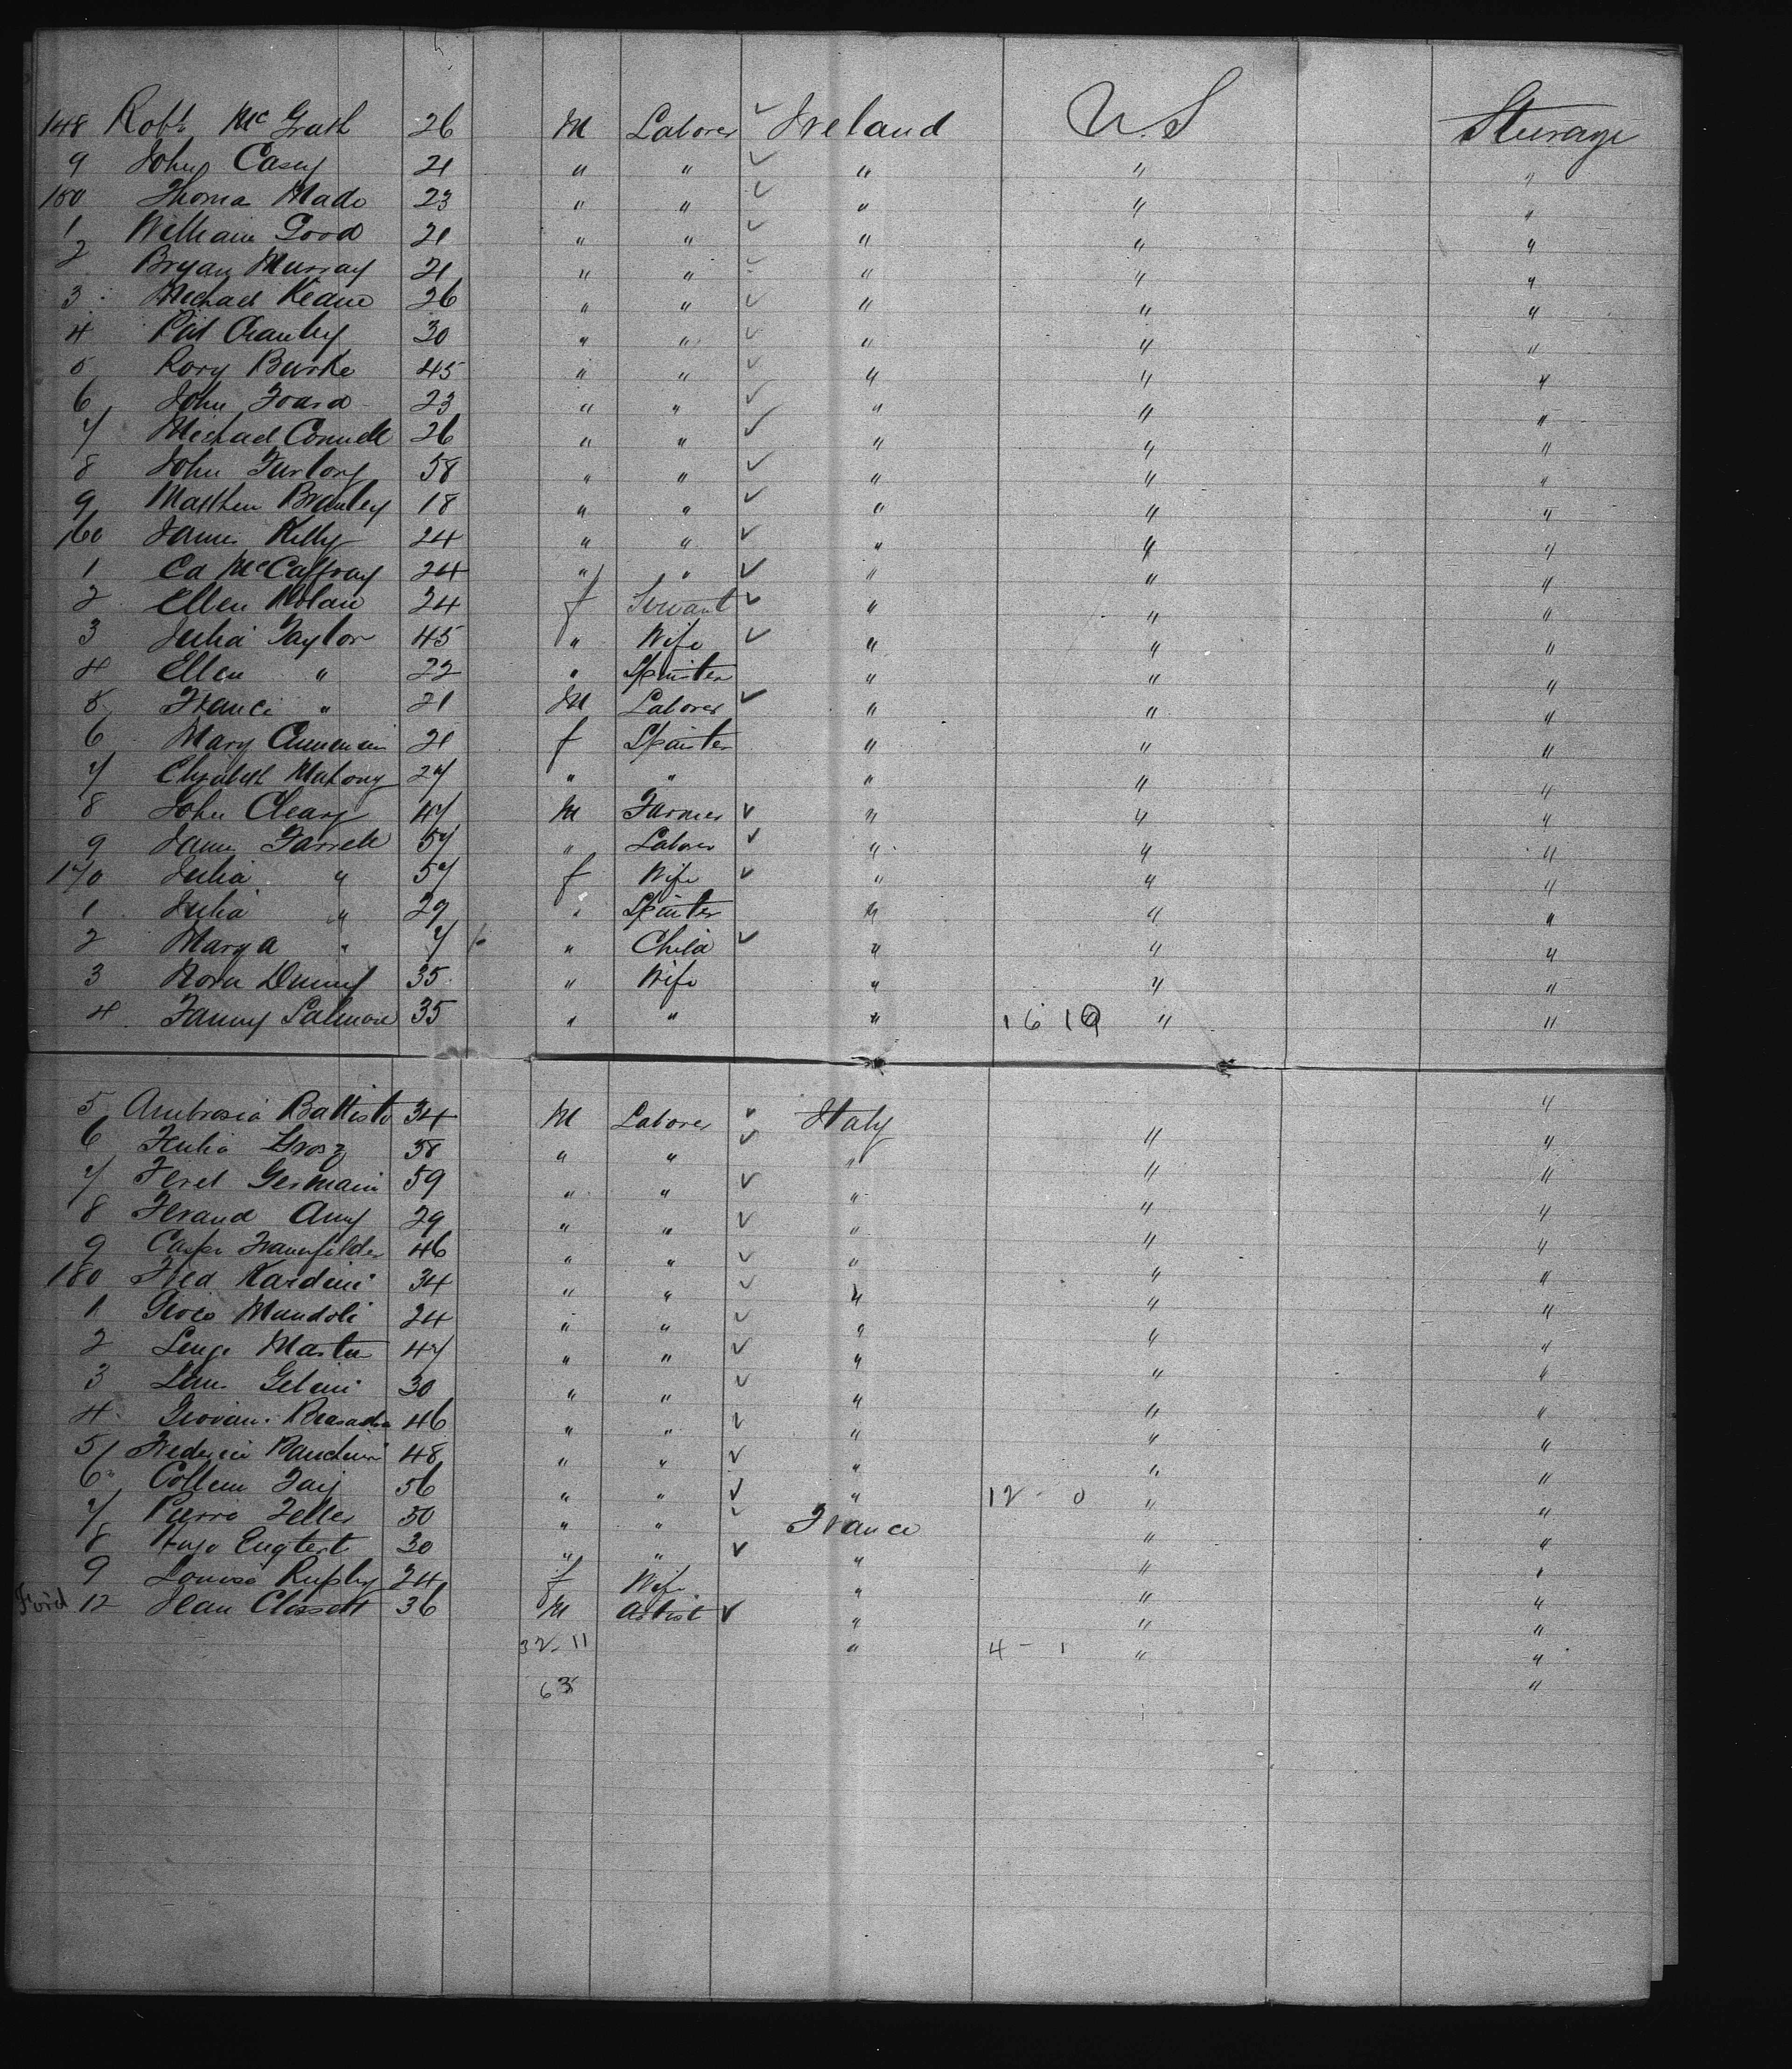 148 Robt. McGrath 26 M Laborer ✓ Ireland U.S Steerage
9 John Casey 21 " " ✓ " " "
150 Thoma Made 23 " " ✓ " " "
1 William Good 21 " " ✓ " " "
2 Bryan Murray 21 " " ✓ " " "
3 Michael Keane 26 " " ✓ " " "
4 Pat 30 " " ✓ " " "
5 Rory Burke 45 " " ✓ " " "
6 John Foard 23 " " ✓ " " "
7 Michael Connell 26 " " ✓ " " "
8 John Furlong 58 " " ✓ " " "
9 Matthew Branley 18 " " ✓ " " "
160 James Kelly 24 " " ✓ " " "
1 Ed McCaffray 24 " " ✓ " " "
2 Ellen Nolan 24 f Servant ✓ " " "
3 Julia Taylor 45 " Wife ✓ " " "
4 Ellen " 22 " Spinster " " "
5 Franci " 21 M Laborer ✓ " " "
6 Mary 21 f Spinster " " "
7 Elizabeth Mahony 27 " " " " "
8 John Cleary 47 M Farmer ✓ " " "
9 James Farrell 57 " Laborer ✓ " " "
170 Julia " 57 f Wife ✓ " " "
1 Julia " 29 " Spinster " " "
2 Mary a " 7 " Child ✓ " " "
3 Nora 35 " Wife " " "
4 Fanny Salmon 35 " " " 16 19 " "
5 Ambrosia Battisto 34 M Laborer ✓ Italy "
6 Grosz 58 " " ✓ " " "
7 Germain 59 " " ✓ " " "
8 Ferand Amy 29 " " ✓ " " "
9 46 " " ✓ " " "
180 Fred Kardini 34 " " ✓ " " "
1 Mandoli 24 " " ✓ " " "
2 47 " " ✓ " " "
3 Gelini 30 " " ✓ " " "
4 46 " " ✓ " " "
5 48 " " ✓ " " "
6 56 " " ✓ " 12 - 0 " "
7 Pierre Feller 50 " " ✓ France " "
8 Hugo Engtert 30 " " ✓ " " "
9 Louisa 24 f Wife " " "
12 Jean Clossett 36 M Artist ✓ " " "
32-11 " 4 - 1 " "
63 "